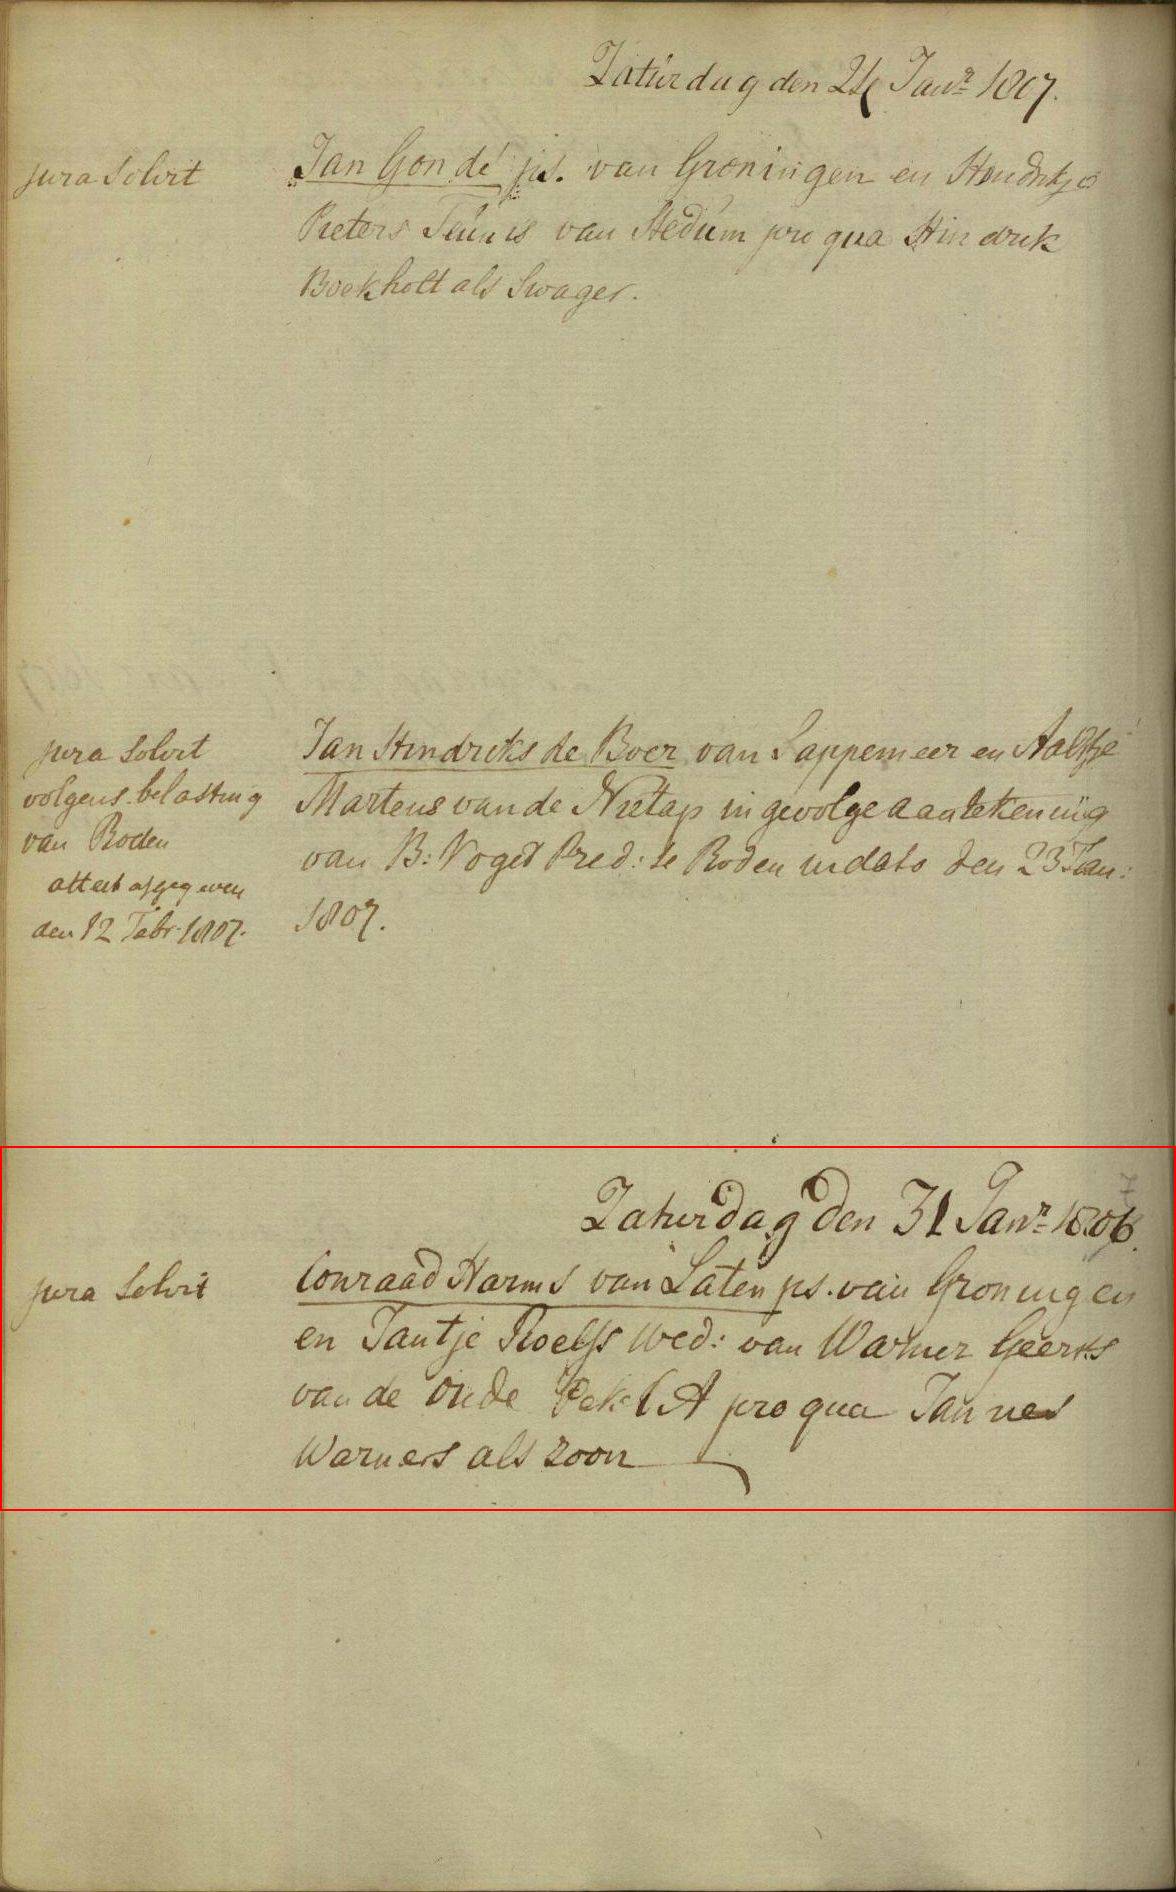 Zaturdag den 24 Janr 1807.
jura solvit
Jan Gondé ps. van Groningen en Hendrikje
Pieters Teunis van Stedum pro qua Hindrik
Boekholt als Swager.
jura solvit
volgens belasting
van Roden
attest afgegeven
den 12 Febr: 1807.
Jan Hindriks de Boer van Sappemeer en Aaltje
Martens van de Nietap in gevolge aantekening
van B: Voget Pred: te Roden in dato den 23 Jan:
1807.
Zaturdag den 31 Janr 180
jura solvit
Conraad Harms van Laten ps. van Groningen
en Jantje Roelfs wed: van Warner Geerts
van de oude Pekel A pro qua Jannes
Warners als zoon